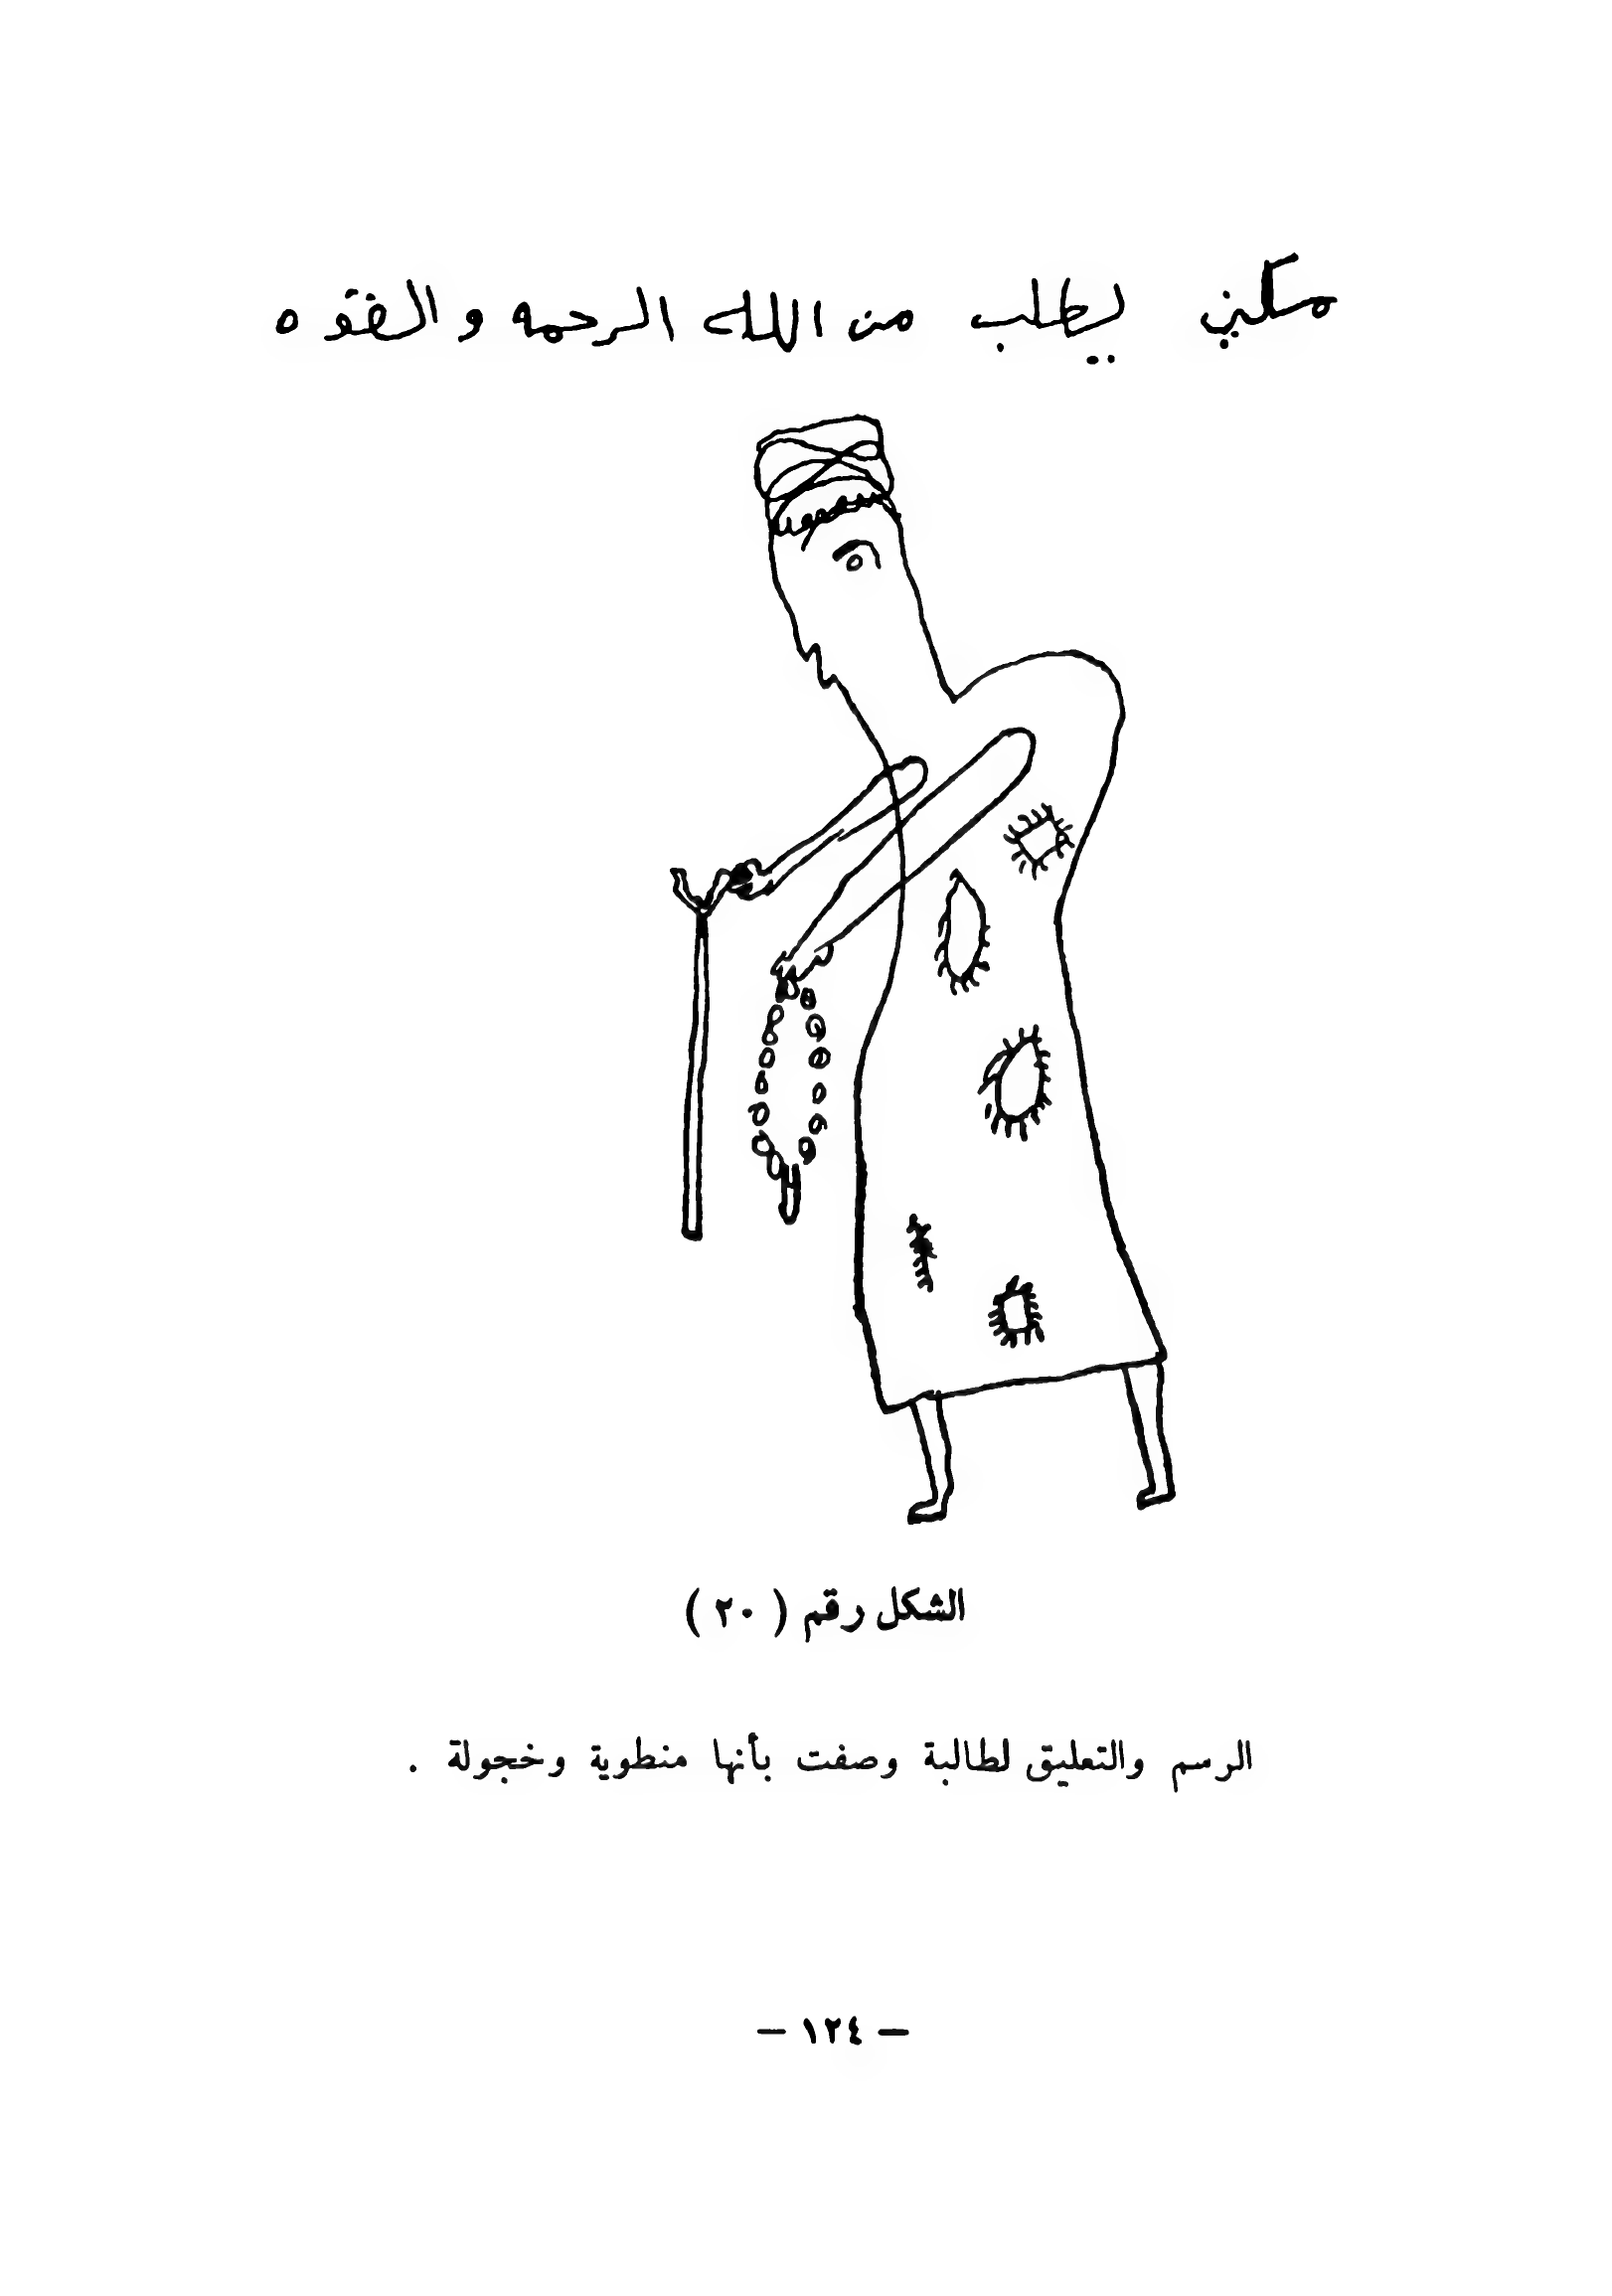 مسكين يطلب من الله الرحمه والقوه
الشكل رقم ( ٢٠ )
الرسم والتعليق لطالبة وصفت بأنها منطوية وخجولة .
— ١٢٤ —